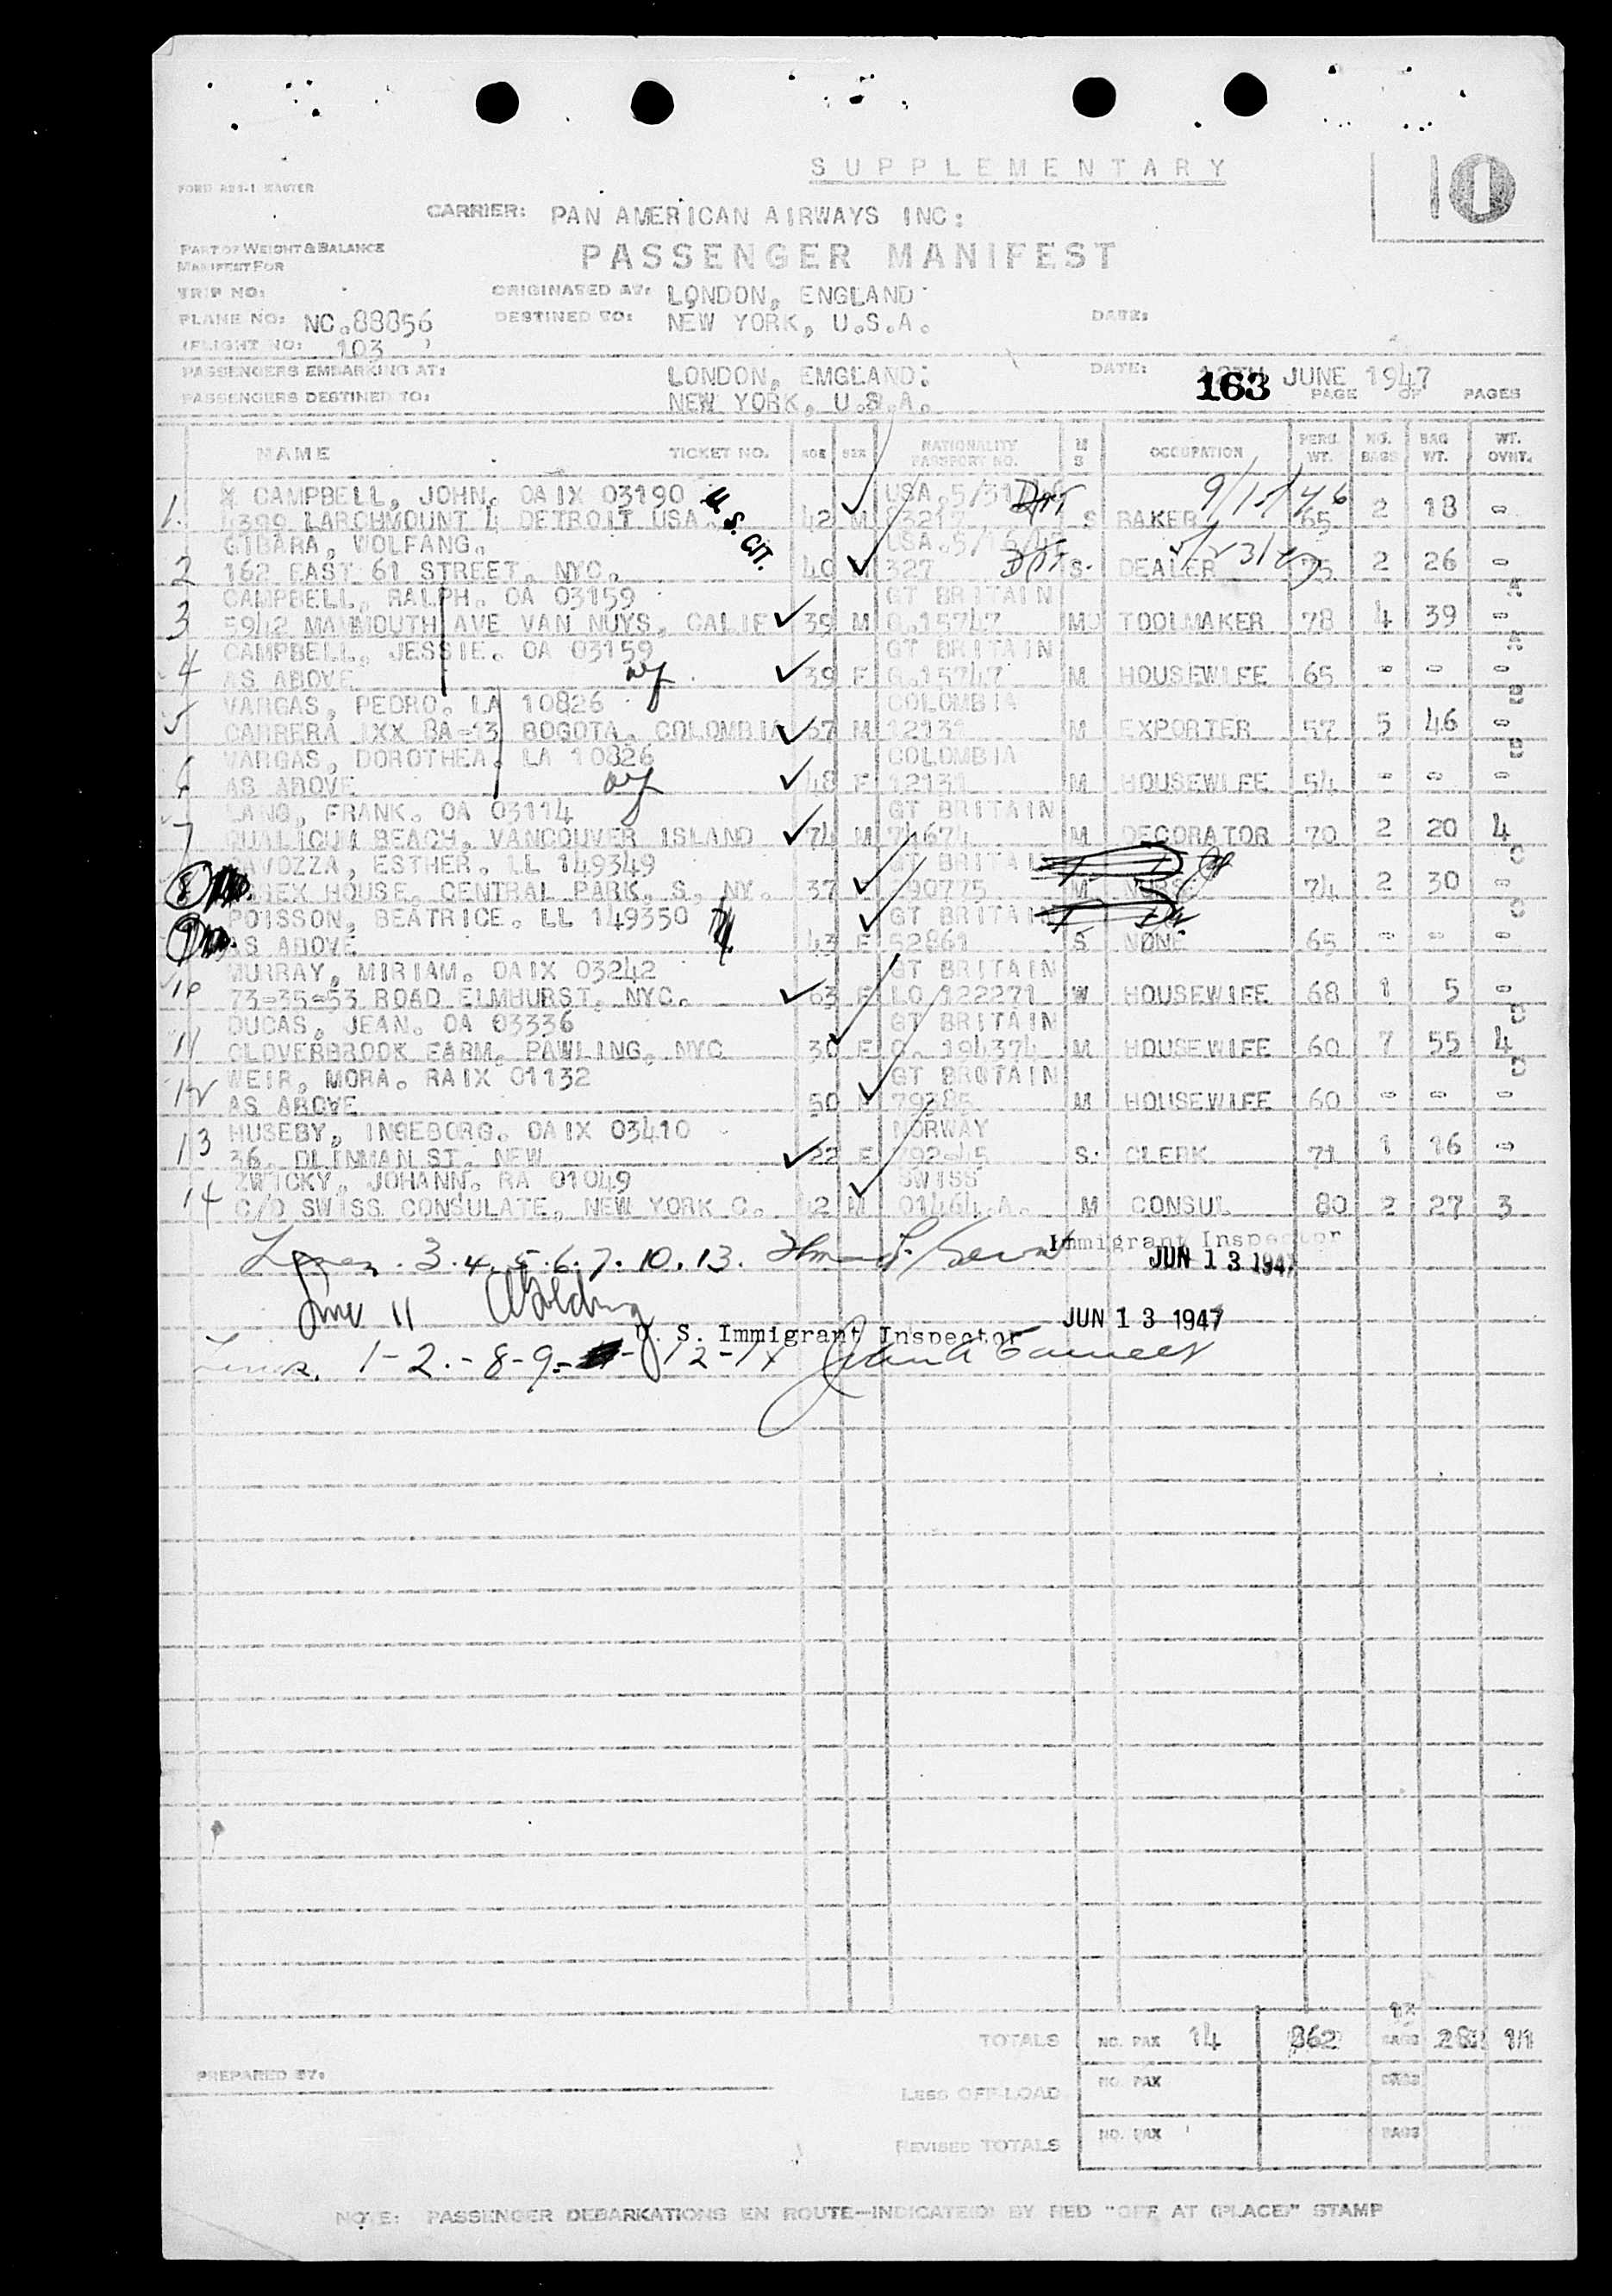 SUPPLEMENTARY
10
FORM
CARRIER: PAN AMERICAN AIRWAYS INC:
PART OF WEIGHT & BALANCE
MANIFEST FOR
PASSENGER MANIFEST
TRIP NO:
ORIGINATED AT: LONDON, ENGLAND
PLANE NO: NC.88856
DESTINED TO: NEW YORK, U.S.A.
DATE:
(FLIGHT NO: 103 )
PASSENGERS EMBARKING AT: LONDON, EMGLAND:
DATE: JUNE 1947
163 PAGE OF PAGES
PASSENGERS DESTINED TO: NEW YORK, U.S.A.
NAME TICKET NO. AGE SEX NATIONALITY PASSPORT NO. M S OCCUPATION PERS. WT. NO. BAGS BAG WT. WT. OVHT.
CAMPBELL, JOHN. OAIX 03190 U.S. CIT. USA. 9/17/46
1. 4399 LARCHMOUNT 4 DETROIT USA. 42 M S BAKER 65 2 18 -
GIBARA, WOLFANG. USA.
2 162 EAST 61 STREET, NYC. 40 327 S. DEALER 2 26 -
CAMPBELL, RALPH. OA 03159 GT BRITAIN
3 5942 AVE VAN NUYS, CALIF 39 M G.15747 M TOOLMAKER 78 4 39 -
CAMPBELL, JESSIE. OA 03159 GT BRITAIN
4 AS ABOVE 39 F G.15747 M HOUSEWIFE 65 - - -
VARGAS, PEDRO. LA 10826 COLOMBIA
5 CARRERA 1XX 8A=13 BOGOTA. COLOMBIA 57 M 12131 M EXPORTER 57 5 46 -
VARGAS, DOROTHEA. LA 10826 COLOMBIA
6 AS ABOVE 48 F 12131 M HOUSEWIFE 54 - - -
LANG, FRANK. OA 03114 GT BRITAIN
7 QUALICUM BEACH, VANCOUVER ISLAND 74 M 74674 M DECORATOR 70 2 20 4
ESTHER. LL 149349 GT BRITAIN
8 ESSEX HOUSE, CENTRAL PARK, S, NY. 37 290775 M 74 2 30 -
POISSON, BEATRICE. LL 149350 GT BRITAIN
9 AS ABOVE 43 F 52861 S NONE 65 - - -
MURRAY, MIRIAM. OAIX 03242 GT BRITAIN
10 73=35=53 ROAD ELMHURST, NYC. 63 F LO 122271 W HOUSEWIFE 68 1 5 -
DUCAS, JEAN. OA 03336 GT BRITAIN
11 CLOVERBROOK FARM, PAWLING, NYC 30 F G. 194374 M HOUSEWIFE 60 7 55 4
WEIR, MORA. RAIX 01132 GT BROTAIN
12 AS ABOVE 50 F 79285 M HOUSEWIFE 60 - - -
HUSEBY, INGEBORG. OAIX 03410 NORWAY
13 36, ST. NEW 22 F 792=45 S. CLERK 71 1 16 -
ZWICKY, JOHANN. RA 01049 SWISS
14 C/O SWISS CONSULATE, NEW YORK C. 42 M 01464.A. M CONSUL 80 2 27 3
Lines. 3.4.5.6.7.10.13. Immigrant Inspector
JUN 13 1947
Line 11
U. S. Immigrant Inspector JUN 13 1947
Lines. 1-2.-8-9- -12-14
TOTALS NO. PAX 14 862 BAGS 11
PREPARED BY:
LESS OFF-LOAD NO. PAX BAGS
REVISED TOTALS NO. PAX BAGS
NOTE: PASSENGER DEBARKATIONS EN ROUTE—INDICATED BY RED "OFF AT (PLACE)" STAMP